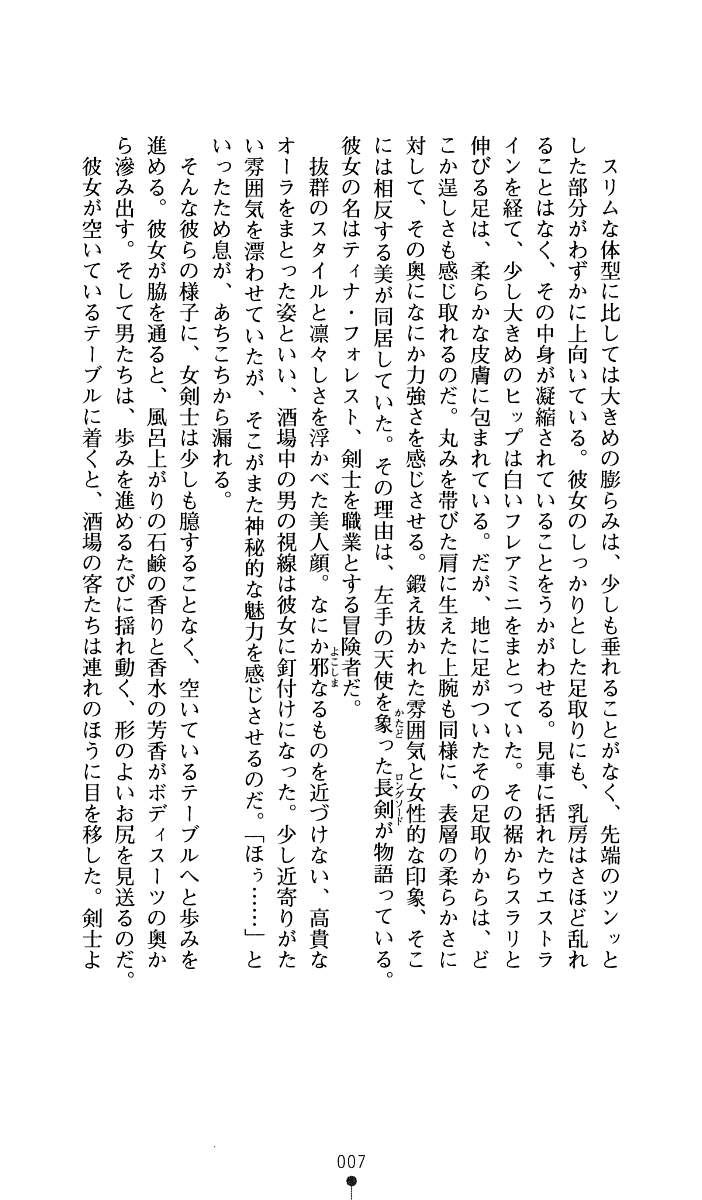 スリムな体型に比しては大きめの膨らみは、少しも垂れることがなく、先端のツンッと
した部分がわずかに上向いている。彼女のしっかりとした足取りにも、乳房はさほど乱れ
ることはなく、その中身が凝縮されていることをうかがわせる。見事に括れたウエストラ
インを経て、少し大きめのヒップは白いフレアミニをまとっていた。その裾からスラリと
伸びる足は、柔らかな皮膚に包まれている。だが、地に足がついたその足取りからは、ど
こか逞しさも感じ取れるのだ。丸みを帯びた肩に生えた上腕も同様に、表層の柔らかさに
対して、その奥になにか力強さを感じさせる。鍛え抜かれた雰囲気と女性的な印象、そこ
には相反する美が同居していた。その理由は、左手の天使を象った長剣が物語っている。
かたど
ロングソード
彼女の名はティナ・フォレスト、剣士を職業とする冒険者だ。
抜群のスタイルと凛々しさを浮かべた美人顔。なにか邪なるものを近づけない、高貴な
よこしま
オーラをまとった姿といい、酒場中の男の視線は彼女に釘付けになった。少し近寄りがた
い雰囲気を漂わせていたが、そこがまた神秘的な魅力を感じさせるのだ。「ほぅ……」と
いったため息が、あちこちから漏れる。
そんな彼らの様子に、女剣士は少しも臆することなく、空いているテーブルへと歩みを
進める。彼女が脇を通ると、風呂上がりの石鹸の香りと香水の芳香がボディスーツの奥か
ら滲み出す。そして男たちは、歩みを進めるたびに揺れ動く、形のよいお尻を見送るのだ。
彼女が空いているテーブルに着くと、酒場の客たちは連れのほうに目を移した。剣士よ
007